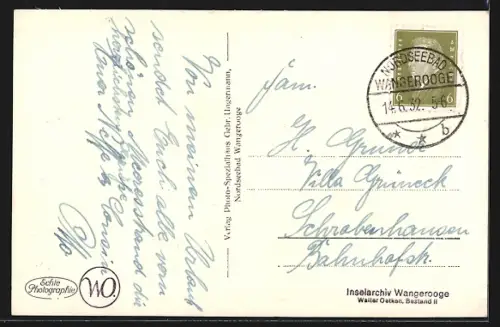 Von meinem Urlaub
sendet Euch alle vom
schönen Meeresstrand die
herzlichsten Grüsse
Euer Neffe & Cousin
Otto
Verlag Photo-Spezialhaus Gebr. Hagermann,
Nordseebad Wangerooge
NORDSEEBAD
WANGEROOGE
14.6.32. 5-6
* * b
6
Fam.
H. Gruner
Villa Grüneck
Schrobenhausen
Bahnhofstr.
Echte
Photographie
WO.
Inselarchiv Wangerooge
Walter Oetken, Bestand II